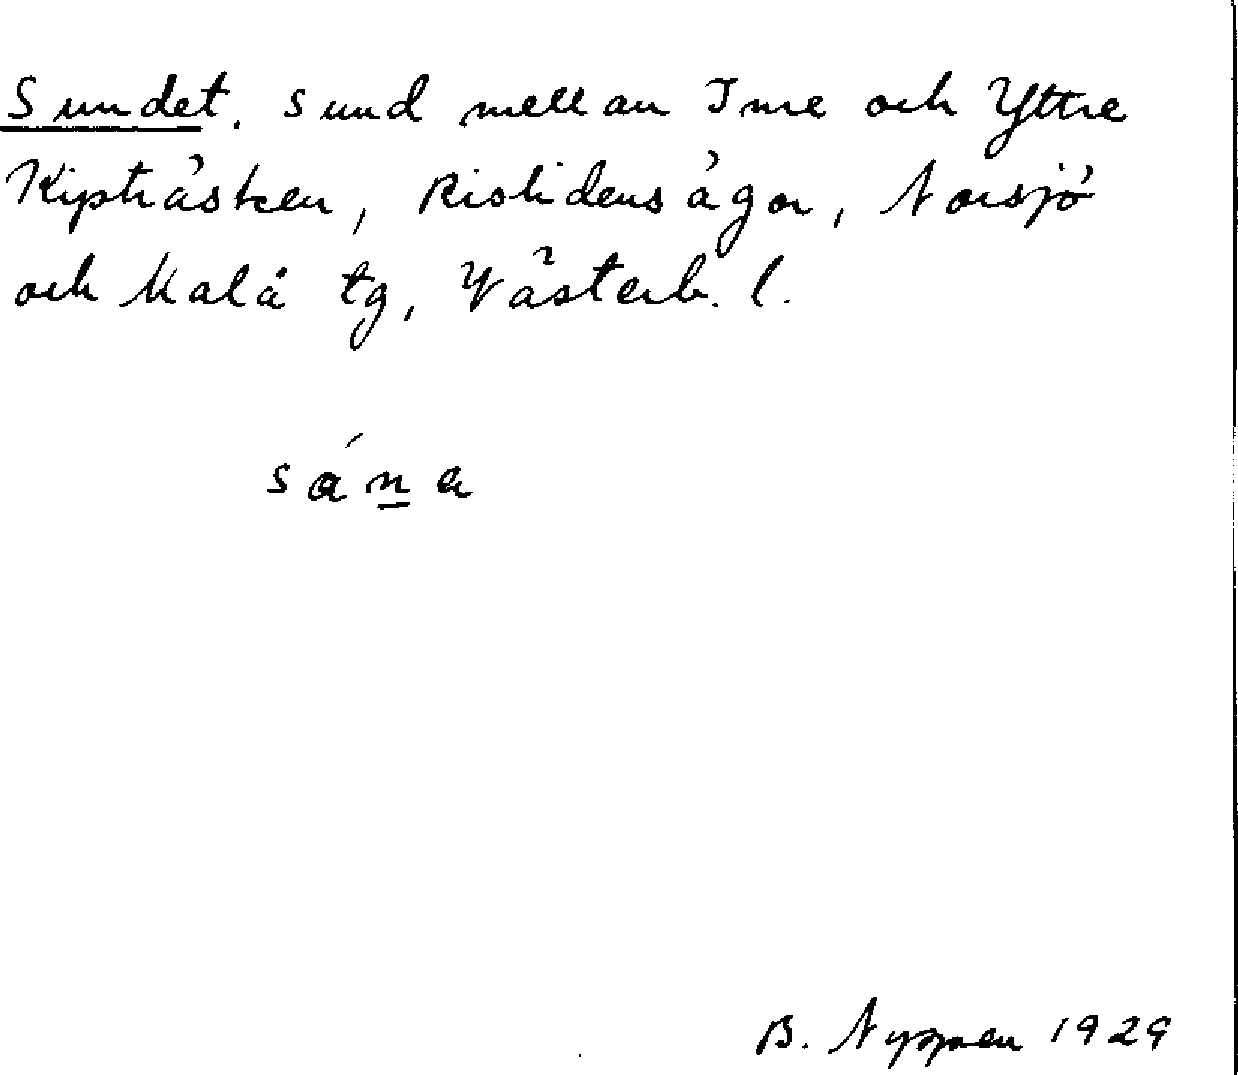 Sundet, sund mellan Inre och Yttre
Kipträsken, Ristidens ägor, Norsjö
och Malå tg, Västerb. l.
sána
B. Nyman 1929